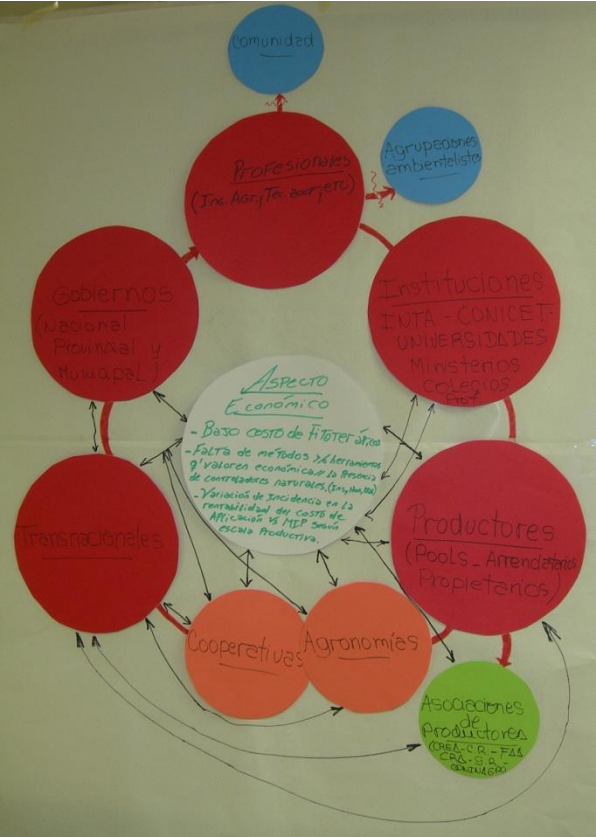 Comunidad
Profesionales
(Ing. Agr, Tec. zoor, etc)
Agrupaciones
ambientalistas
Gobiernos
(Nacional
Provincial y
Municipal)
Instituciones
INTA - CONICET-
UNIVERSIDADES
Ministerios
Colegios
Prof
ASPECTO
Económico
- Bajo costo de Fitoterápicos
- Falta de métodos y/o herramientos
q' valoren económica// la Presencia
de controladores naturales,
- Variación de Incidencia en la
rentabilidad del costo de
Aplicación Vs MIP según
escala Productiva.
Transnacionales
Productores
(Pools - Arrendatarios
Propietarios)
Cooperativas
Agronomías
Asociaciones
de
Productores
(CREA - C.R - FAA
CRA - S.R -
CONINAGRO)